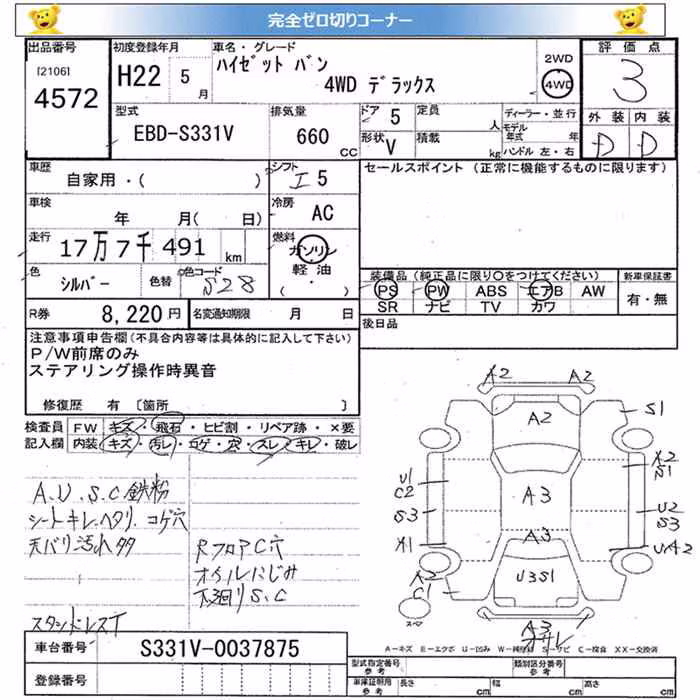 完全ゼロ切りコーナー
出品番号
[2106]
4572
初度登録年月
H22 5 月
車名・グレード
ハイゼット バン
4WD デラックス
2WD
4WD
評価点
3
外装 内装
D D
型式
EBD-S331V
排気量
660 CC
ドア 5
形状 V
定員 人
積載 kg
ディーラー・並行
モデル年式 年
ハンドル 左・右
車歴
自家用・( )
シフト
I 5
セールスポイント (正常に機能するものに限ります)
車検
年 月( 日)
冷房
AC
走行
17万7千491 km
燃料
ガソリン
軽油
( ・ )
色
シルバー
色替
色コード
S28
装備品 (純正品に限り○をつけてください)
PS PW ABS エアB AW
SR ナビ TV カワ
新車保証書
有・無
R券
8,220円
名変通知期限 月 日
後日品
注意事項申告欄(不具合内容等は具体的に記入して下さい)
P/W前席のみ
ステアリング操作時異音
修復歴 有 〔箇所 〕
検査員
記入欄
FW キズ・飛石・ヒビ割・リペア跡・×要
内装 キズ・汚レ・コゲ・穴・スレ・キレ・破レ
A.U.S.C鉄粉
シートキレ.ヘタリ.コゲ穴
天バリ汚れ多
RフロアC穴
オイルにじみ
下廻りS.C
スタッドレスT
A2 A2
S1
A2
A2
S1
U1
C2
A3
S3
U2
S3
A1
A3
UA2
A2
C1
U3S1
スペア
A3
車台番号
S331V-0037875
登録番号
A-キズ E-エクボ U-凹み W-補修跡 S-サビ C-腐食 XX-交換済
型式指定番号
参考
類別区分番号
参考
車庫証明用
参考
長さ cm
幅 cm
高さ cm